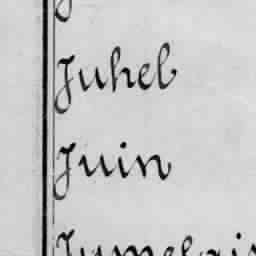 Juhel
Juin